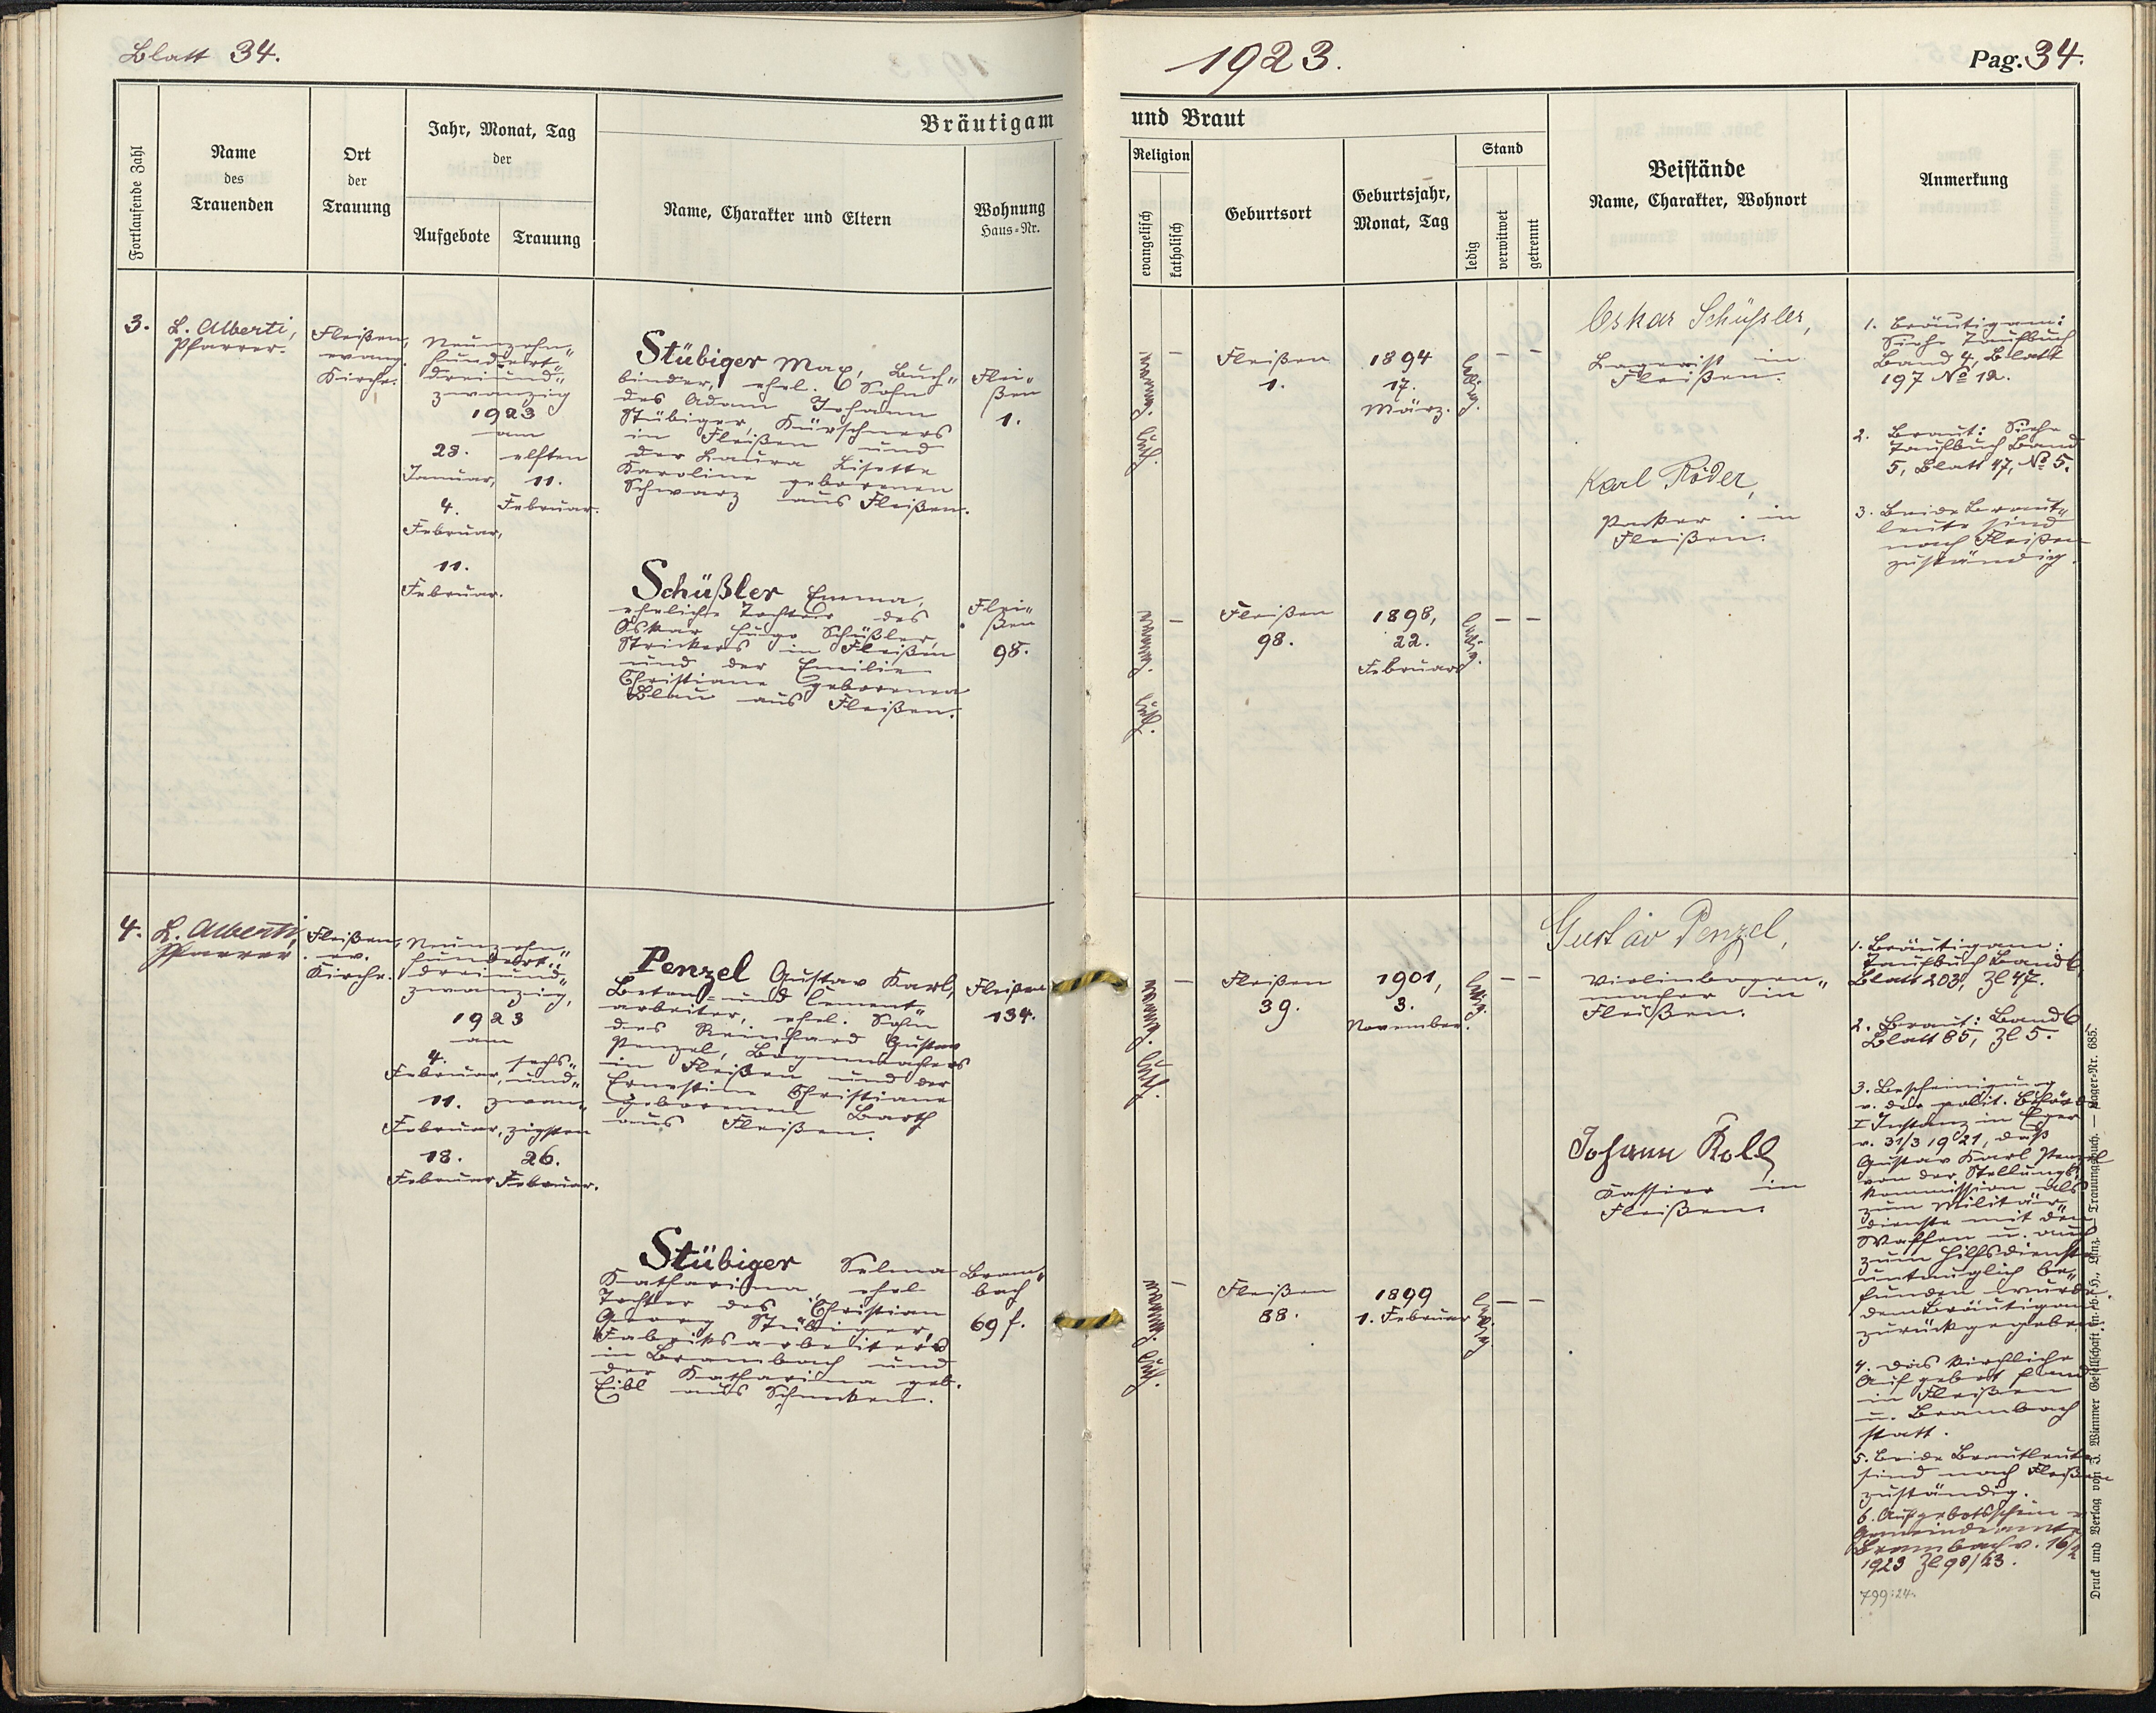 Blatt 34.
1923.
Pag. 34.
Fortlaufende Zahl
Name
des
Trauenden
Ort
der
Trauung
Jahr, Monat, Tag
der
Aufgebote
Trauung
Bräutigam
Name, Charakter und Eltern
Wohnung
Haus-Nr.
und Braut
Religion
evangelisch
katholisch
Geburtsort
Geburtsjahr,
Monat, Tag
Stand
ledig
verwitwet
getrennt
Beistände
Name, Charakter, Wohnort
Anmerkung
3.
L. Alberti,
Pfarrer.
Fleißen,
evang.
Kirche.
Neunzehn-
hundert-
dreiund-
zwanzig
1923
am
28.
Januar,
4.
Februar,
11.
Februar.
elften
11.
Februar.
Stübiger Max, Buch-
binder, ehel. Sohn
des Adam Johann
Stübiger, Kürschners
in Fleißen und
der Laura Lisette
Karoline geborenen
Schwarz aus Fleißen.
Flei-
ßen
1.
evang. luth.
–
Fleißen
1.
1894
17.
März.
ledig.
–
–
Oskar Schüssler,
Lagerist in
Fleißen.
Karl Röder,
Packer in
Fleißen.
1. Bräutigam:
Siehe Taufbuch
Band 4, Blatt
197 No 12.
2. Braut: Siehe
Taufbuch Band
5, Blatt 47, No 5.
3. Beide Braut-
leute sind
nach Fleißen
zuständig.
Schüßler Emma,
eheliche Tochter des
Oskar Hugo Schüßler,
Strickers in Fleißen
und der Emilie
Christiane geborenen
Blau aus Fleißen.
Flei-
ßen
98.
evang. luth.
–
Fleißen
98.
1898,
22.
Februar
ledig.
–
–
4.
L. Alberti,
Pfarrer
Fleißen,
ev.
Kirche.
Neunzehn-
hundert-
dreiund-
zwanzig,
1923
am
4.
Februar,
11.
Februar,
18.
Februar
sechs-
und-
zwan-
zigsten
26.
Februar.
Penzel Gustav Karl,
Beton- und Cement-
arbeiter, ehel. Sohn
des Reinhard Gustav
Penzel, Bogenmachers
in Fleißen und der
Ernestine Christiane
geborenen Barth
aus Fleißen.
Fleißen
134.
evang. luth.
–
Fleißen
39.
1901,
3.
November.
ledig.
–
–
Gustav Penzel,
Violinbogen-
macher in
Fleißen.
Johann Koll
Kassier in
Fleißen.
1. Bräutigam:
Taufbuch Band 6,
Blatt 203, Zl 47.
2. Braut: Band 6,
Blatt 85, Zl 5.
3. Bescheinigung
v. der polit. Behörde
I Instanz in Eger
v. 31/3 1921, daß
Gustav Karl Penzel
von der Stellungs-
kommission als
zum Militär-
dienste mit den
Waffen u. auch
zum Hilfsdienste
untauglich be-
funden wurde,
dem Bräutigam
zurückgegeben.
4. Das kirchliche
Aufgebot fand
in Fleißen
u. Brambach
statt.
5. Beide Brautleute
sind nach Fleißen
zuständig.
6. Aufgebotsschein v.
Gemeindeamte
Brambach v. 16/2
1923 Zl 98/23.
799:24.
Stübiger Selma
Katharina, ehel.
Tochter des Christian
Georg Stübiger,
Fabriksarbeiters
in Brambach und
der Katharina geb.
Eibl aus Schnecken.
Bram-
bach
69 f.
evang. luth.
–
Fleißen
88.
1899
1. Februar
ledig.
–
–
Druck und Verlag von J. Wimmer Gesellschaft m. b. H., Linz. — Trauungsbuch. — Lager-Nr. 685.